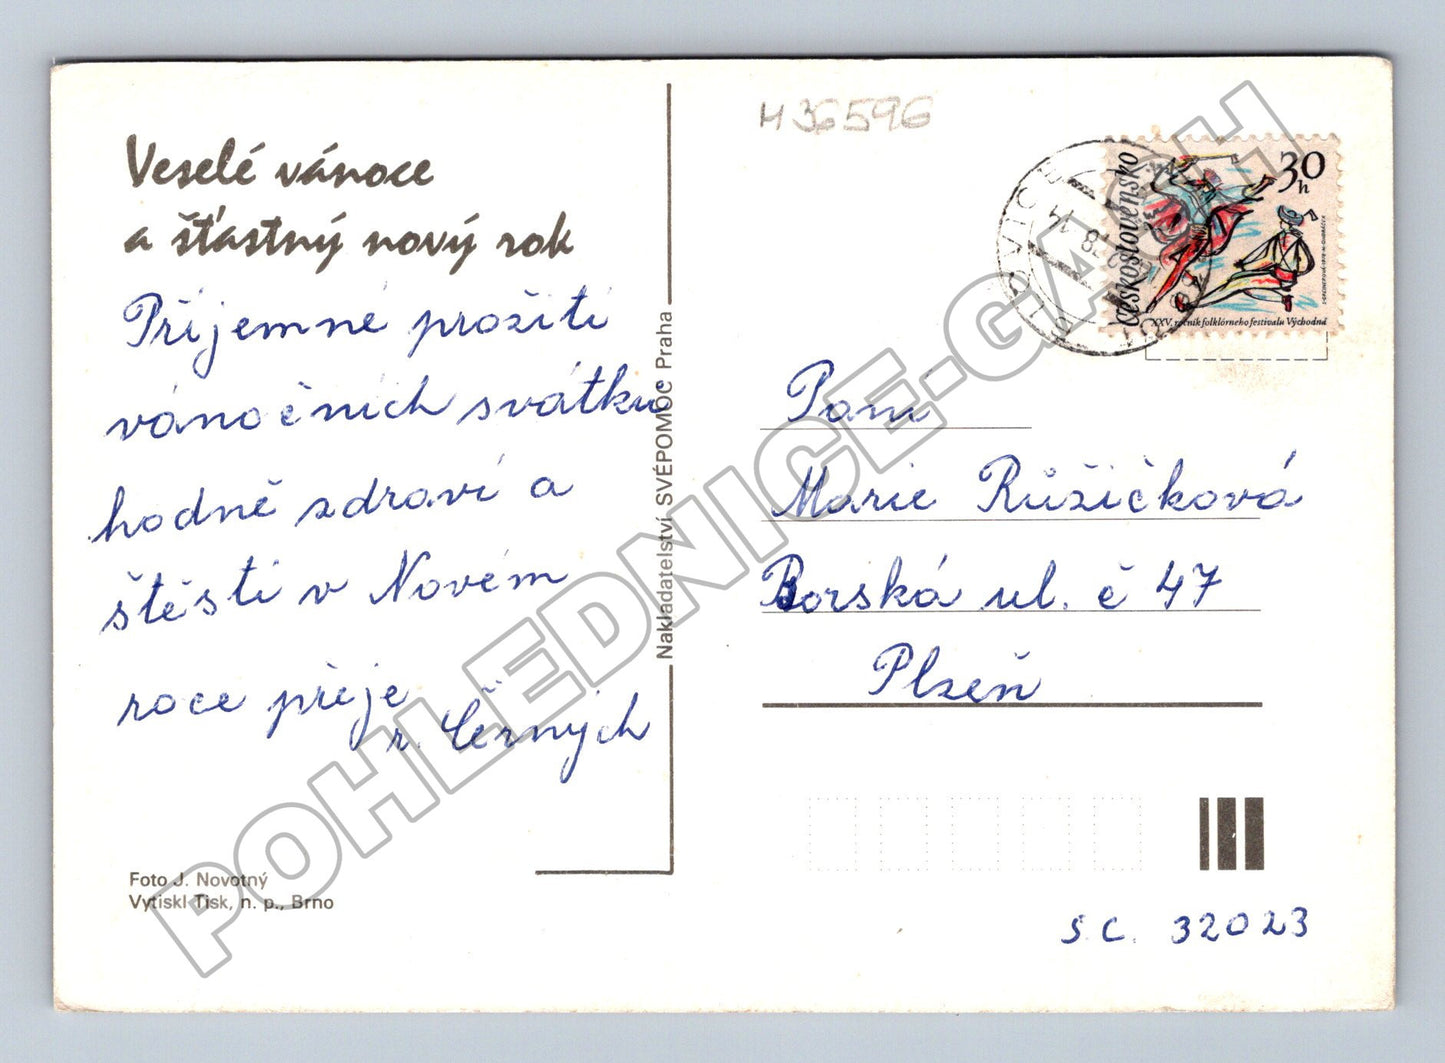 Veselé vánoce
a šťastný nový rok
Příjemné prožití
vánočních svátků
hodně zdraví a
štěstí v Novém
roce přeje
r. Černých
Foto J. Novotný
Vytiskl Tisk, n. p., Brno
Nakladatelství SVÉPOMOC Praha
H 36596
Československo
30
h
XXV. ročník folklórneho festivalu Východná
Paní
Marie Růžičková
Borská ul. č 47
Plzeň
S.C. 32023
POHLEDNICE-GACH